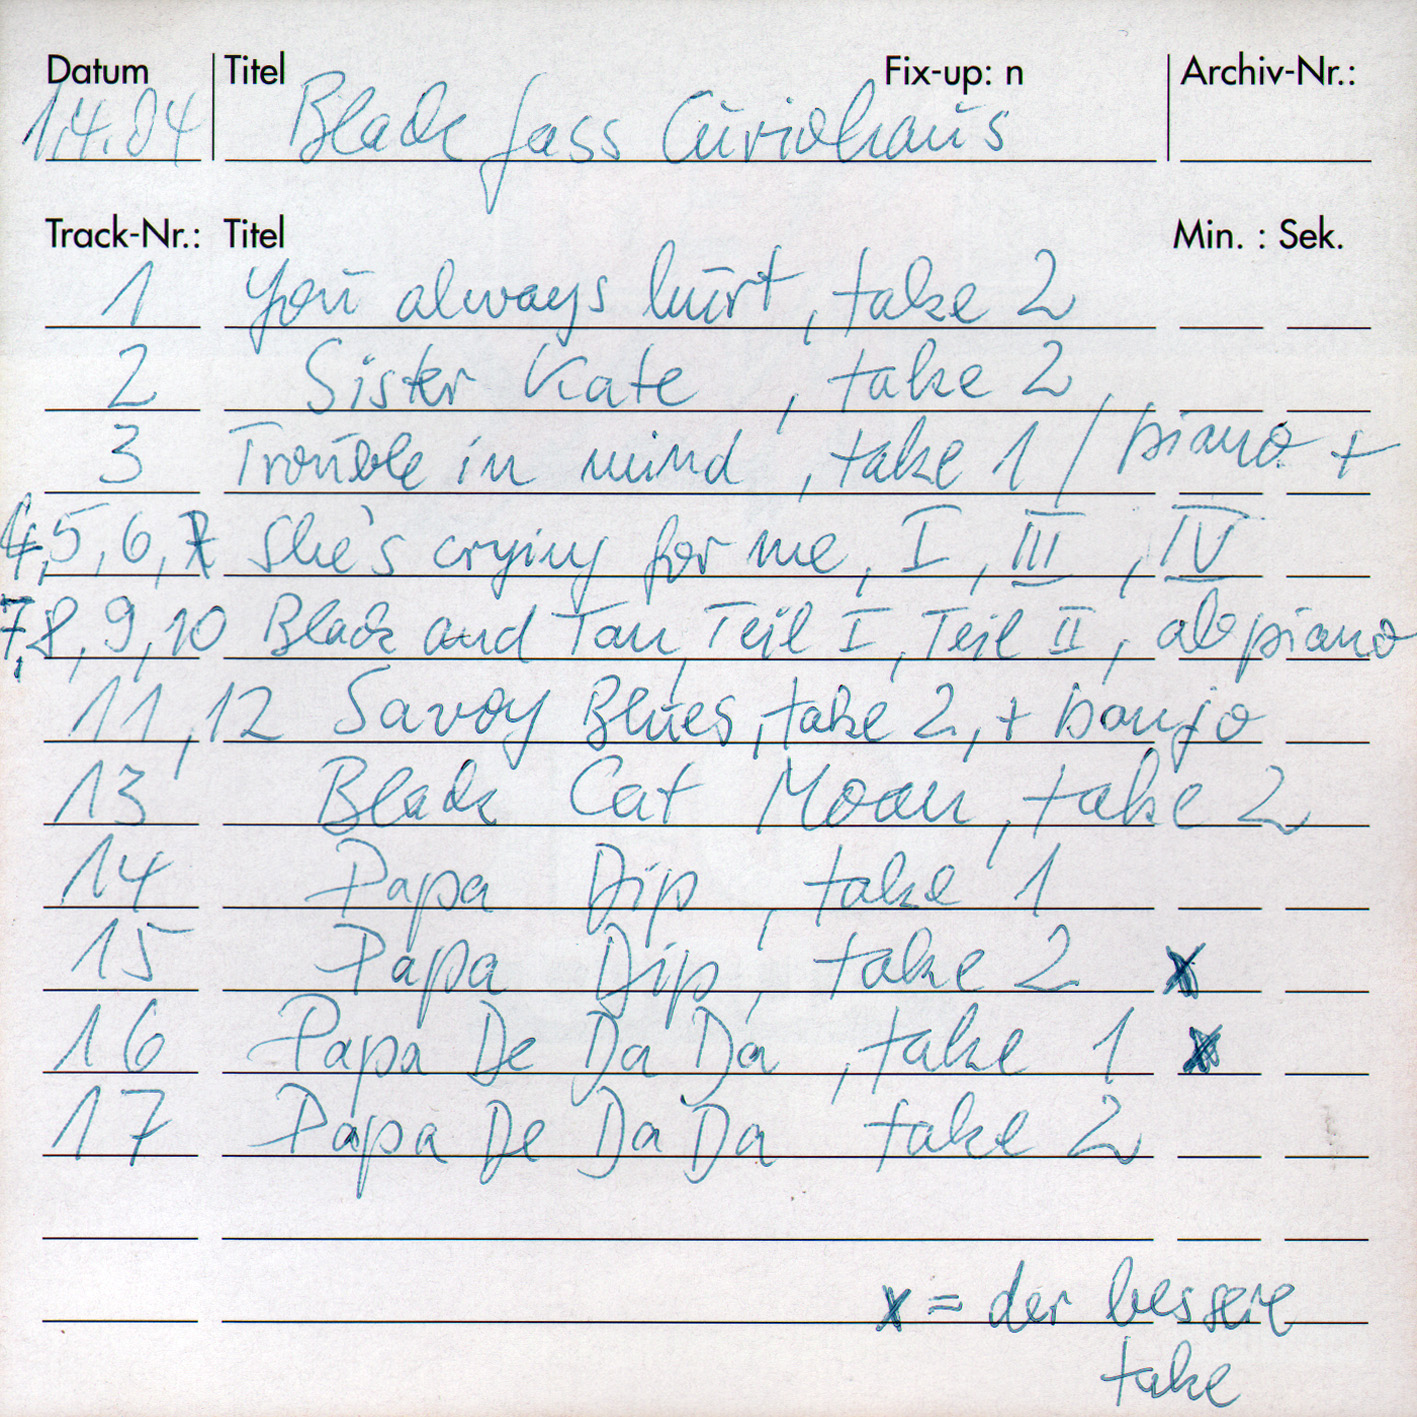 Datum Titel Fix-up: n Archiv-Nr.:
1.4.04 Black Jass Curiohaus
Track-Nr.: Titel Min. : Sek.
1 You always hurt, take 2
2 Sister Kate, take 2,
3 Trouble in mind, take 1 / piano +
4,5,6,7 She's crying for me, I, III, IV
7,8,9,10 Black and Tan, Teil I, Teil II, ab piano
11,12 Savoy Blues, take 2, + banjo
13 Black Cat Moan, take 2
14 Papa Dip, take 1
15 Papa Dip, take 2 x
16 Papa De Da Da, take 1 x
17 Papa De Da Da take 2
x = der bessere
take